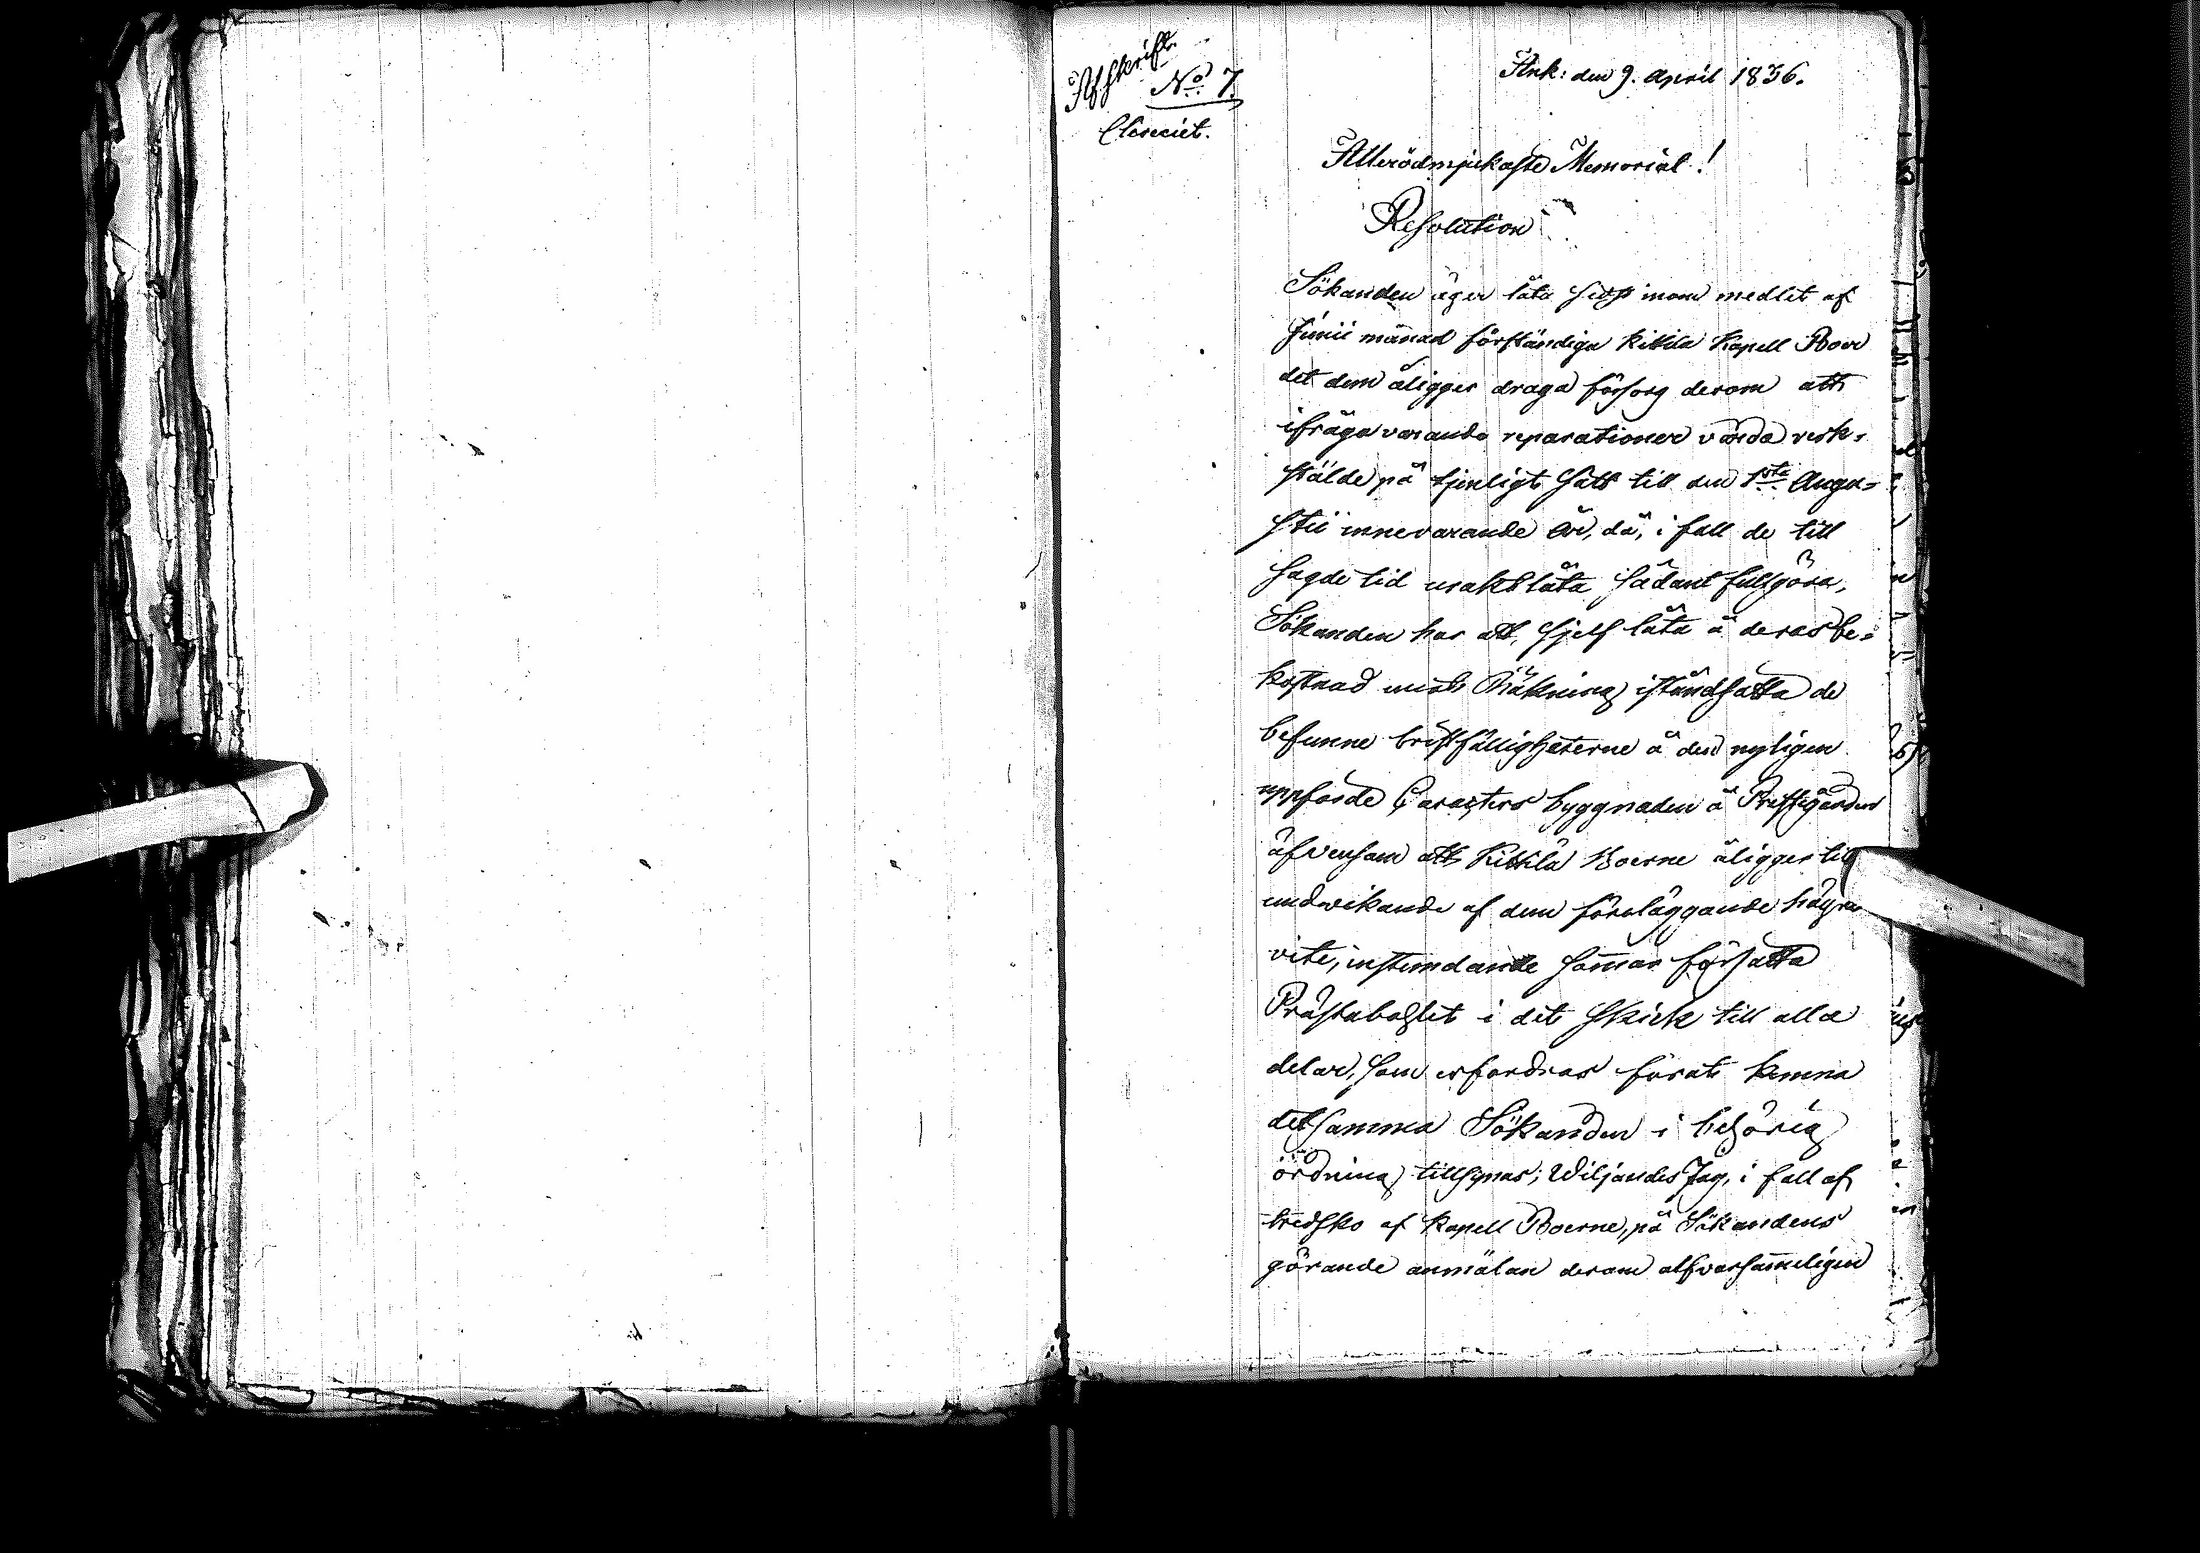 Afskrift.
No 7.
Ank: den 9. April 1836.
Allerödmjukaste Memorial!
Resolution
Sökanden äger låta sist inom medlet af
Junii månad förständiga Kittilä Kapell Boer
det dem åligger draga försorg derom att
ifrågavarande reparationer varda verk-
stälde på tjenligt sätt till den 1sta Augu-
stii innevarande år, då, i fall de till
sagde tid uraktlåta sådant fullgöra,
Sökanden har att sjelf låta å deras be-
kostnad mot Räkning iståndsätta de
befunne bristfälligheterne å den nyligen
uppförde Caracters byggnaden å Prestgården
äfvensom att Kittilä Boerne åligger till
undvikande af dem föreläggande
vite, instundande sommar försätta
Prästabohlet i det skick till alla
delar, som erfordras förat kunna
detsamma Sökanden i behörig
ordning tillsynas; Wiljandes Jag, i fall af
tredsko af Kapell Boerne, på Sökandens
görande anmälan derom alfvarsammeligen